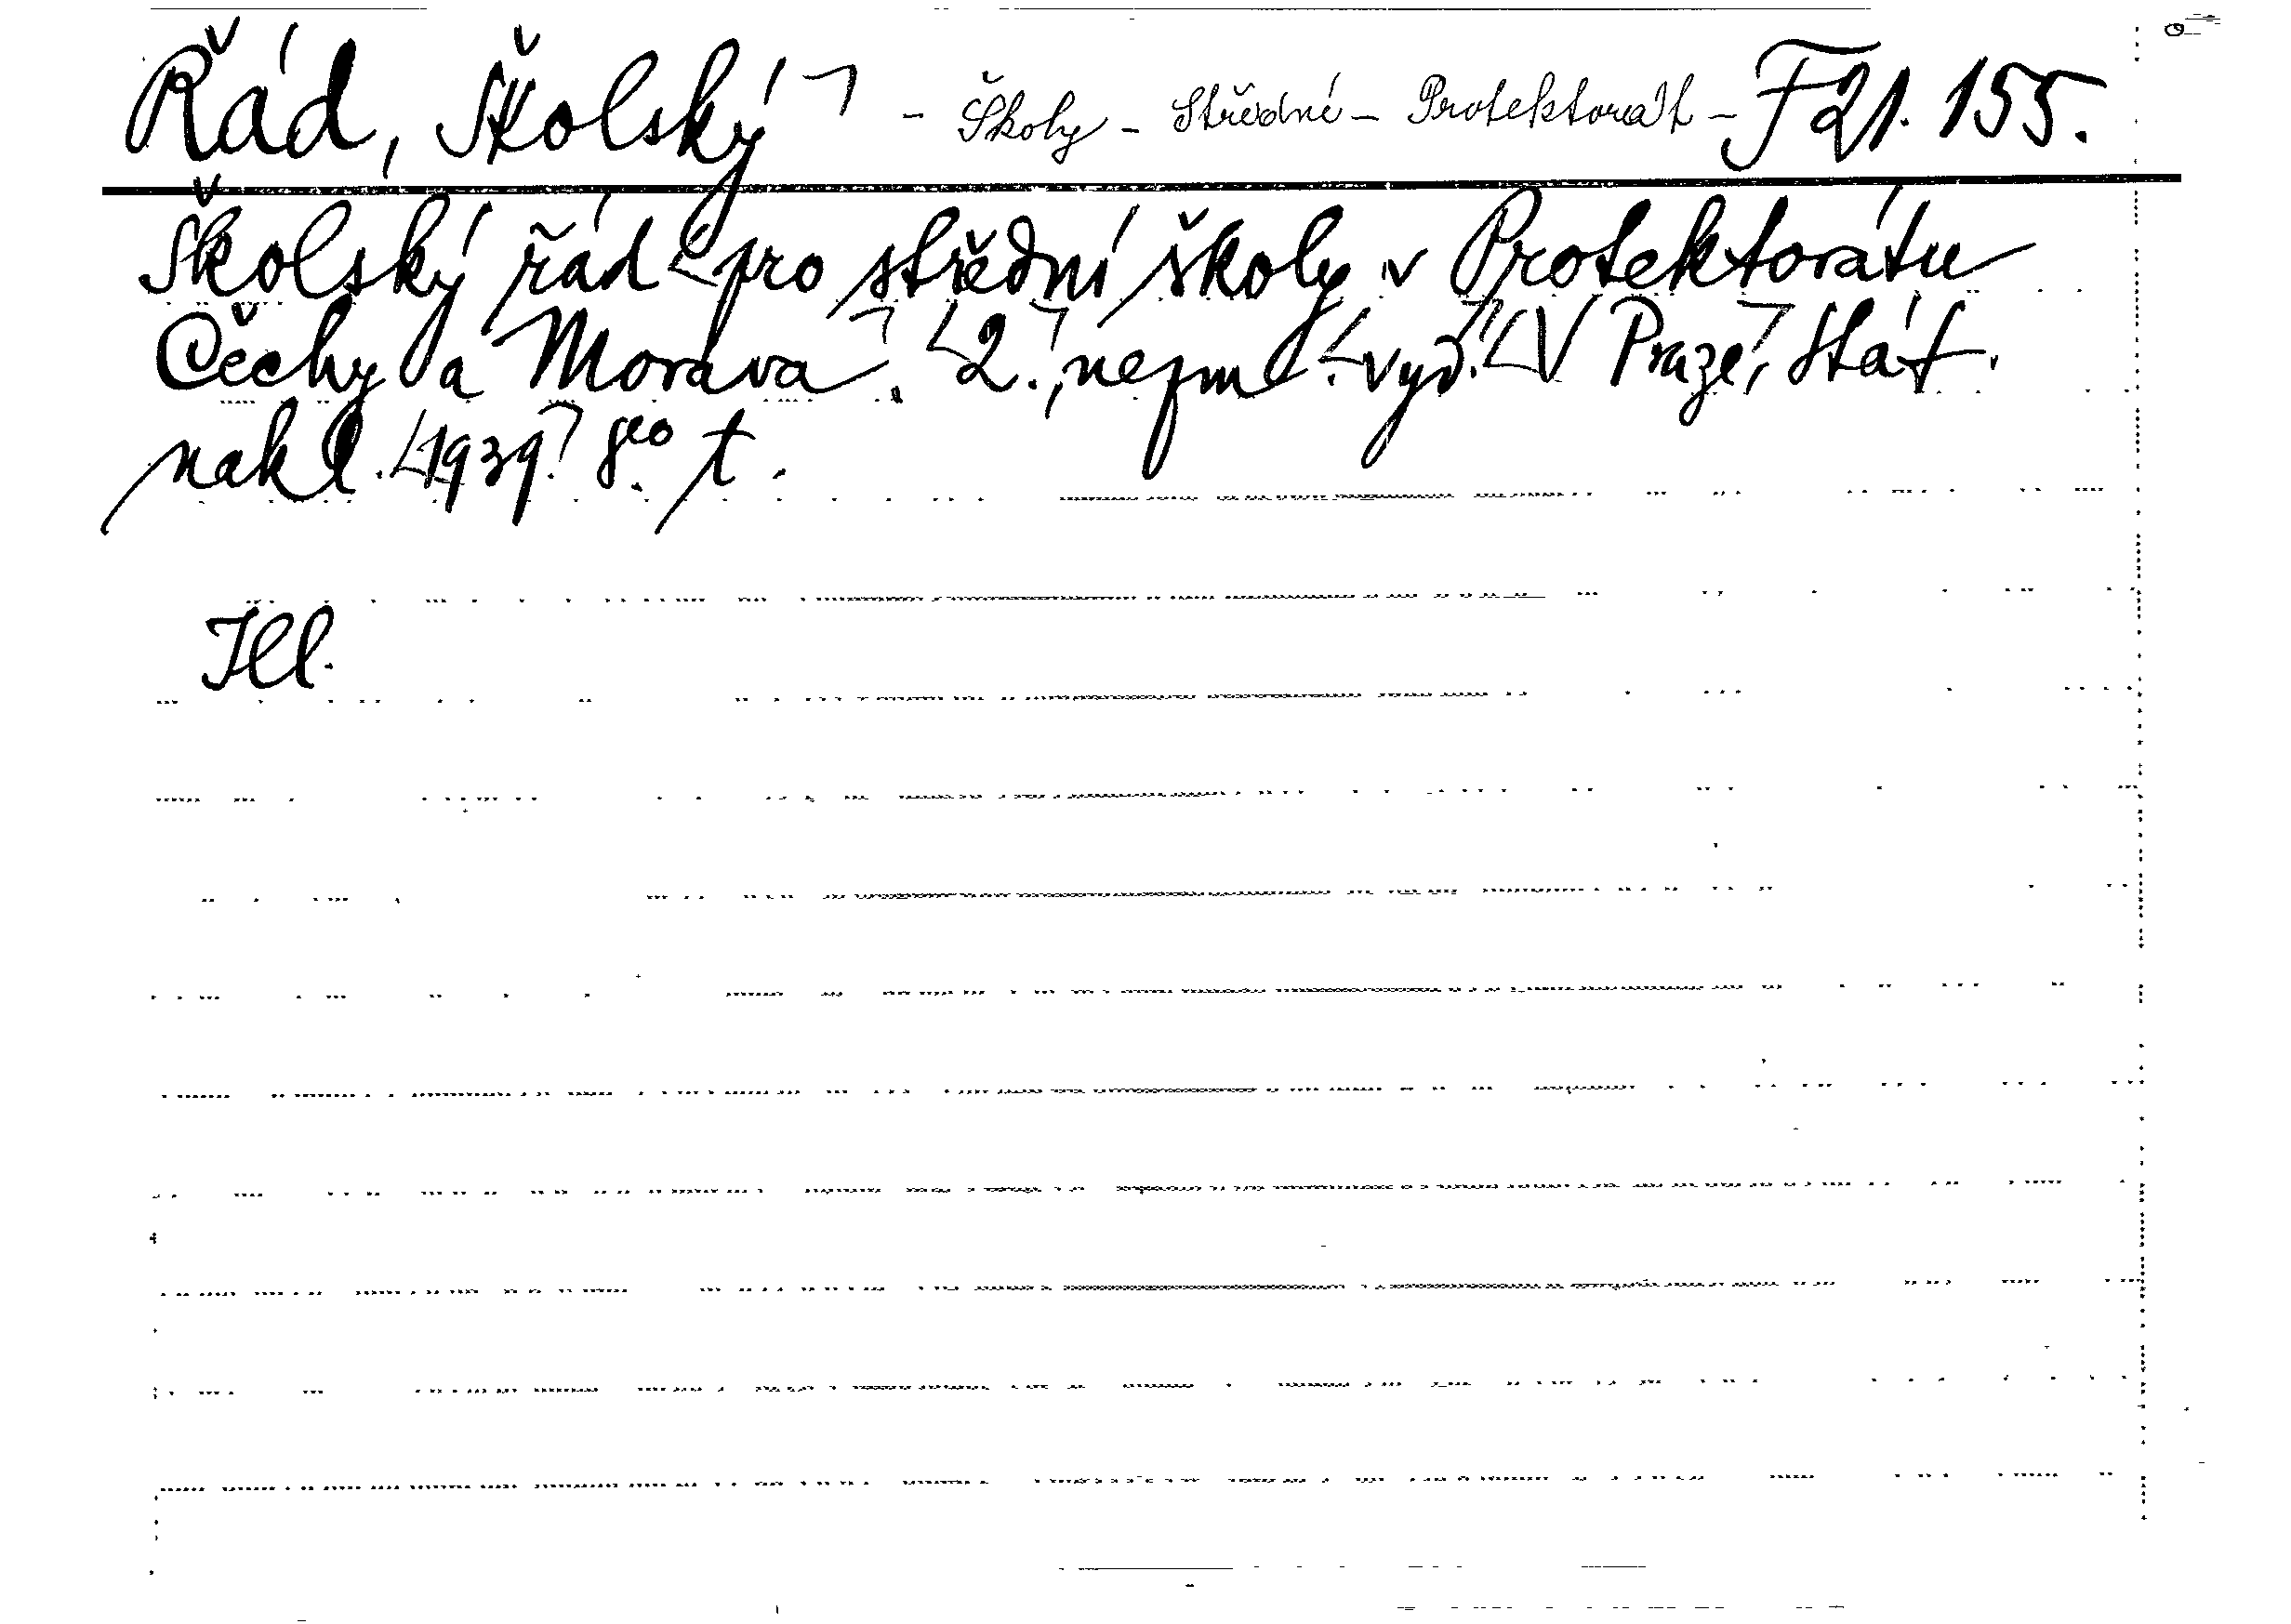 Řád, Školský ¬ - Školy - Středné - Protektorát - F 21. 155.
Školský řád pro střední školy v Protektorátu
Čechy a Morava. 2., nezm. vyd. V Praze, Stát.
nakl. 1939. 8eo. t.
Ill.